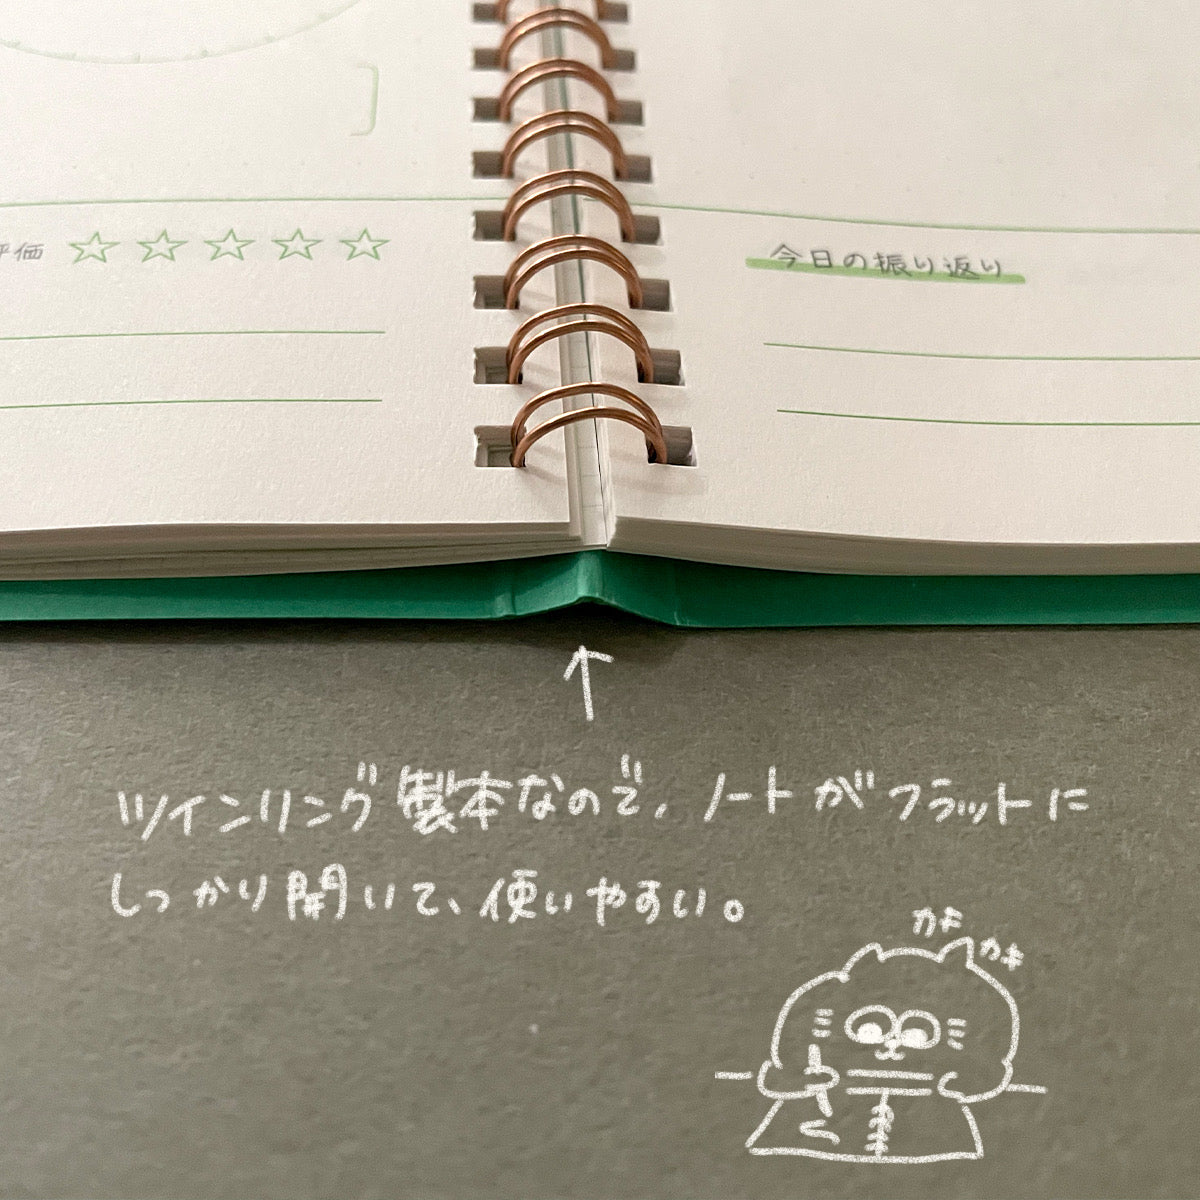 評価 ☆☆☆☆☆
今日の振り返り
ツインリング製本なので、ノートがフラットに
しっかり開いて、使いやすい。
カキ
カキ